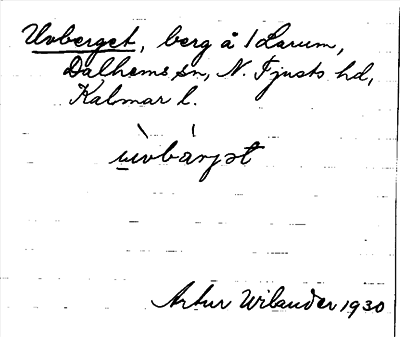 Uvberget, berg å 1 Larum,
Dalhems sn, N. Tjusts hd,
Kalmar l.
ùvbárjət
Artur Wilander 1930